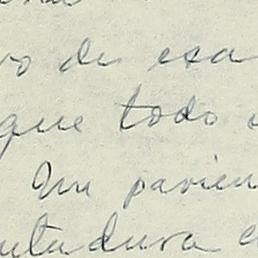 vo de esa
que todo
Un parien
utadura e